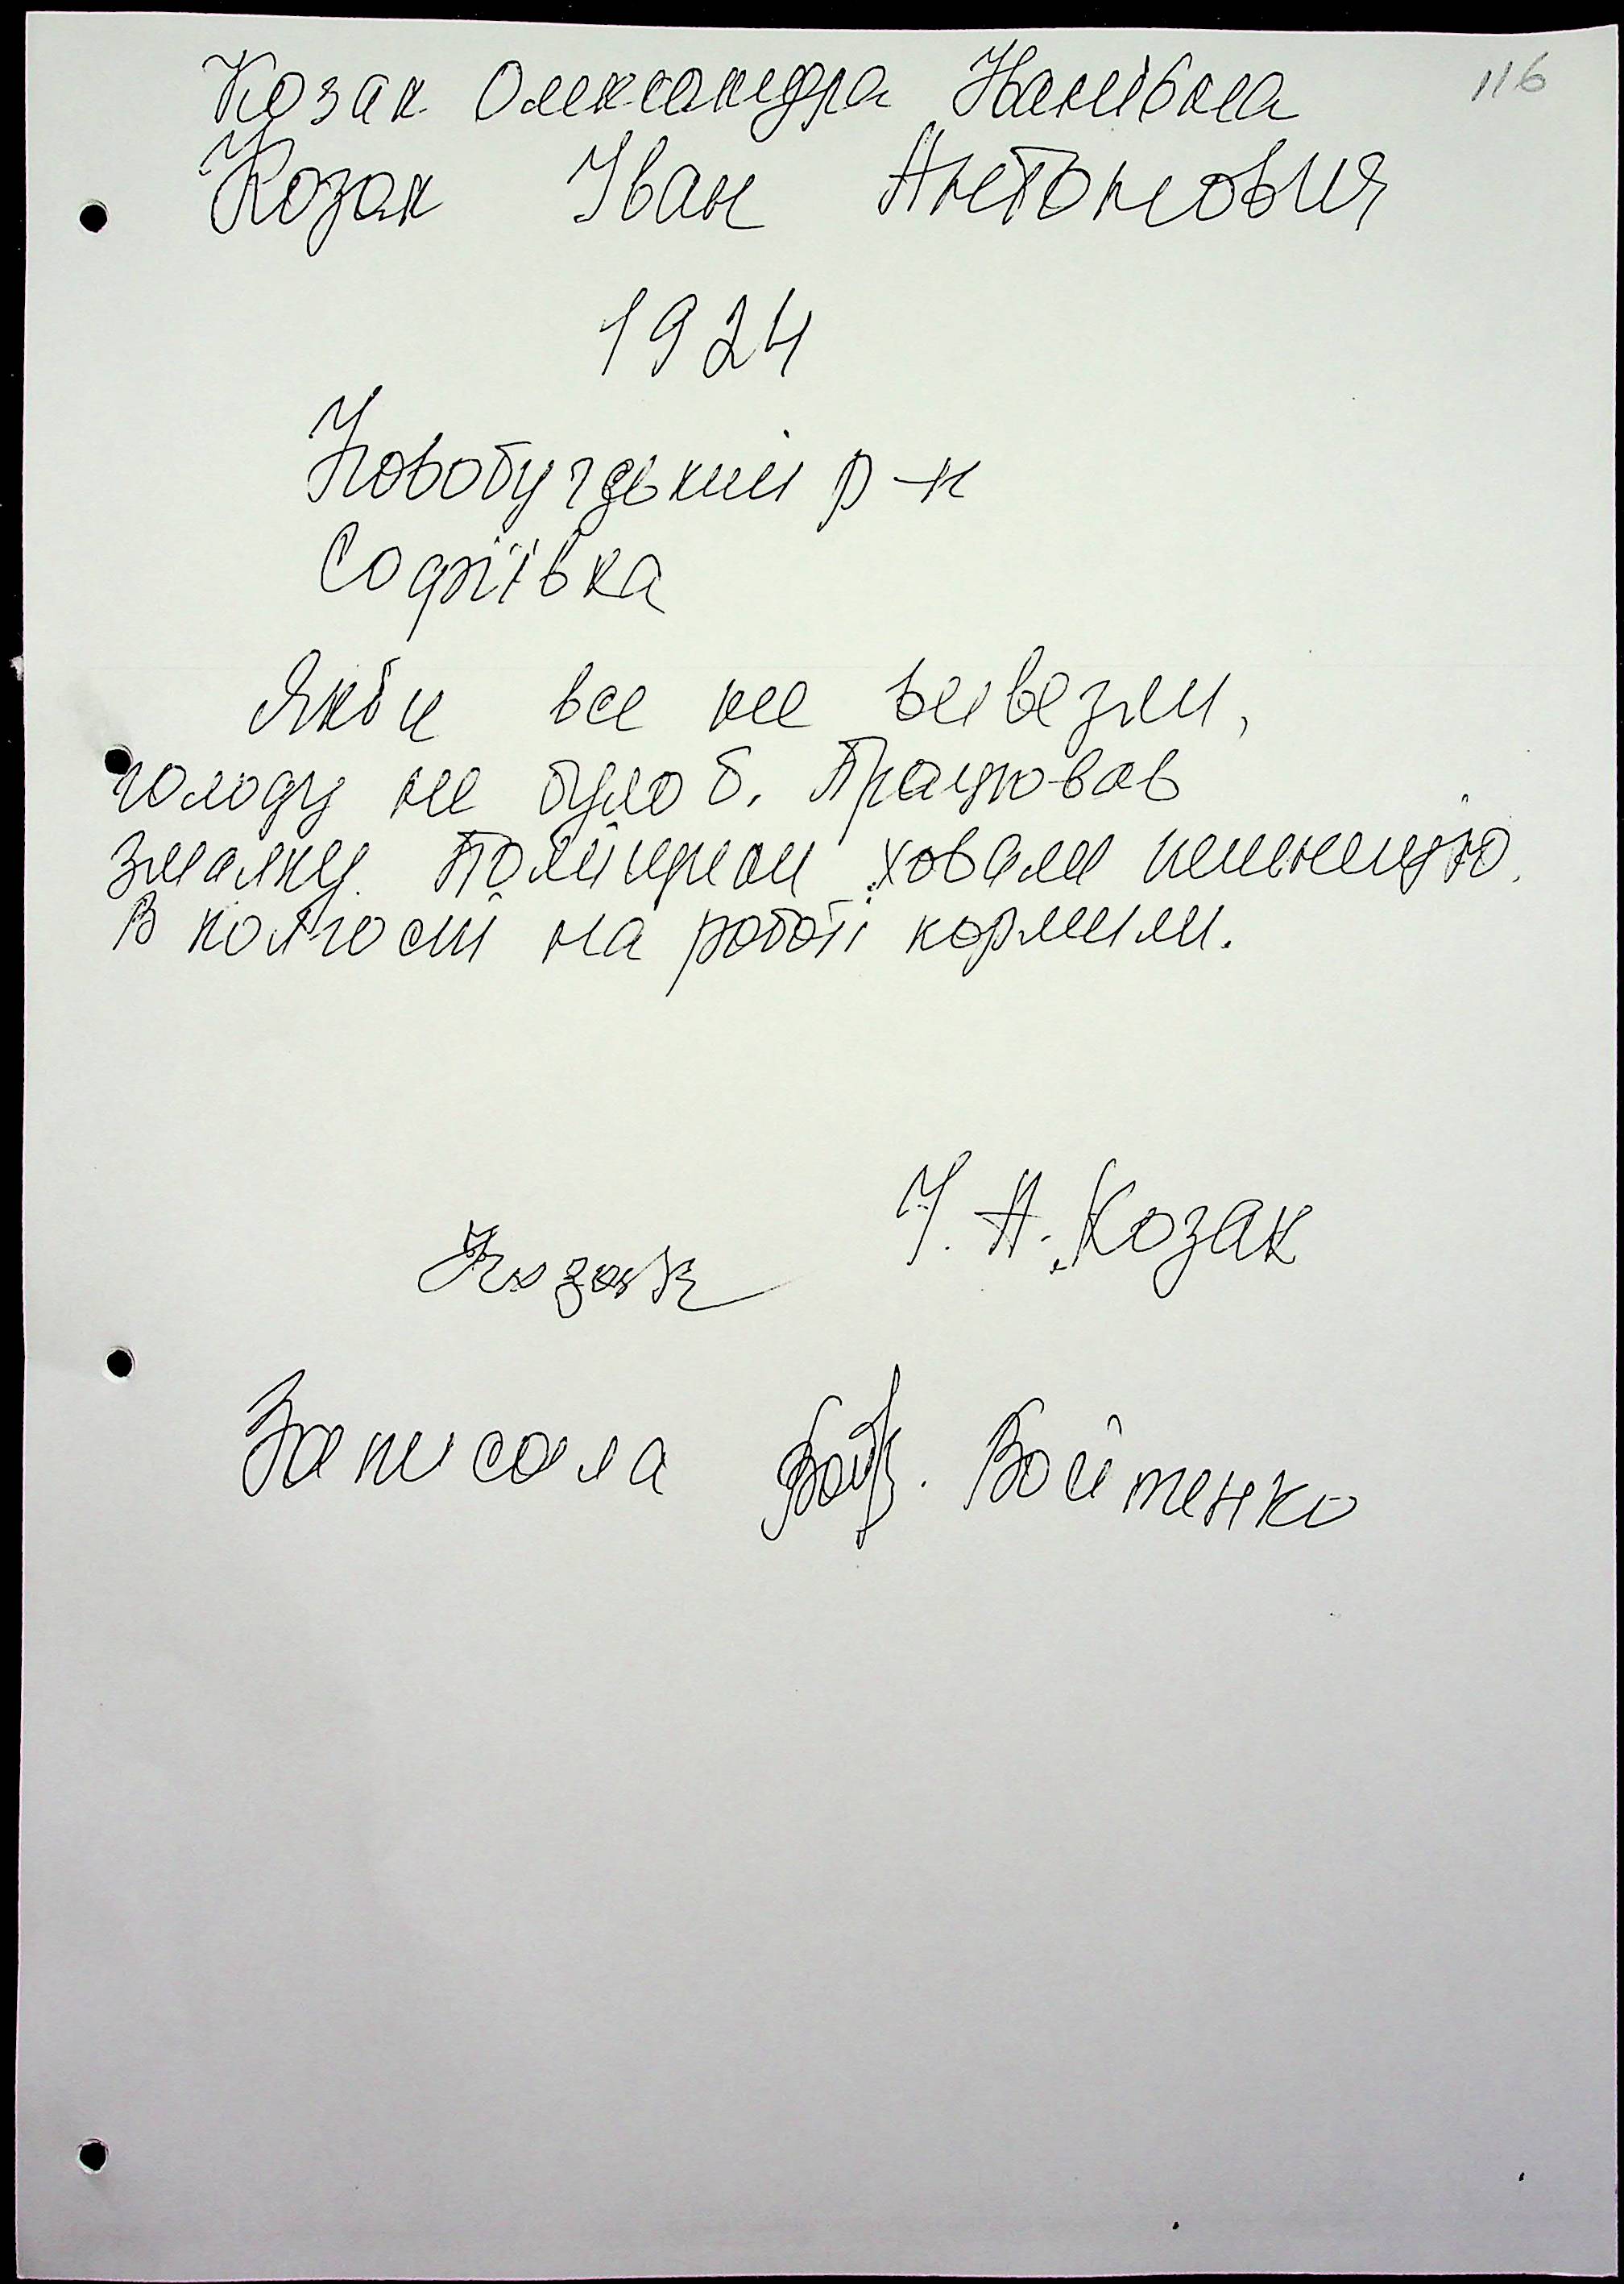 116
Козак Олександра Іванівна
Козак Іван Антонович
1924
Новобугський р-н
Софіївка
Якби все не вивезли,
голоду не було б. Працював
змалку. Поліцион ховали пшеницю.
В колгоспі на роботі кормили.
І. А. Козак
Козак
Записала Войтенко